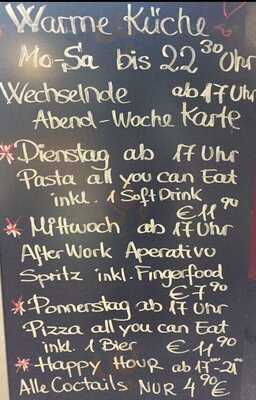 Warme Küche
Mo-Sa bis 22³⁰ Uhr
Wechselnde ab 17 Uhr
Abend-Woche Karte
* Dienstag ab 17 Uhr
Pasta all you can Eat
inkl. 1 Soft Drink
€ 11⁹⁰
* Mittwoch ab 17 Uhr
After Work Aperativo
Spritz inkl. Fingerfood
€ 7⁹⁰
* Donnerstag ab 17 Uhr
Pizza all you can Eat
inkl. 1 Bier € 11⁹⁰
* Happy Hour ab 17⁰⁰-21⁰⁰
Alle Coctails NUR 4⁹⁰ €